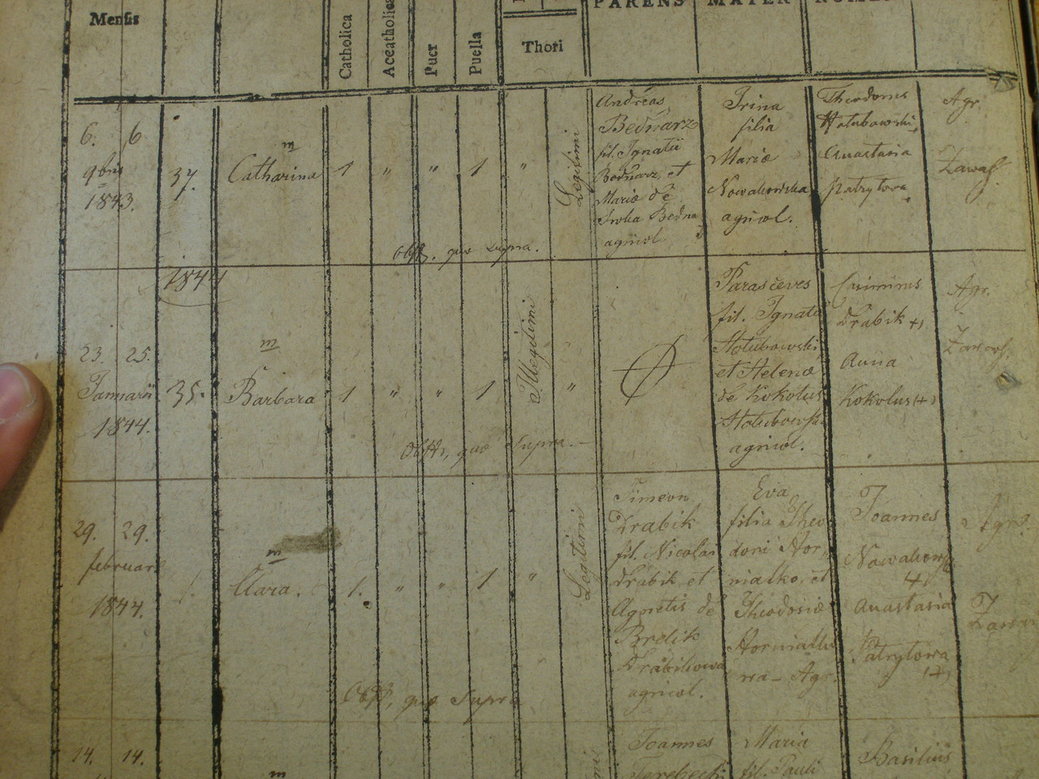 Mensis
Catholica
Acatholica
Puer
Puella
Thori
PARENS
MATER
NOMEN
6. 6.
9bris
1843.
37.
m
Catharina
1 " " 1 "
Legitimi
Andreas
Bednarz
fil. Ignatii
Bednarz et
Mariæ de
agricol.
Irina
filia
Mariæ
Nowakowska
agricol.
Theodorus
Hołubowski,
Anastasia
Patrylova
Agr.
Obst. quæ Supra.
1844
23. 25.
Januarii
1844.
35.
m
Barbara
1 " " 1
Illegitimi
"
Parasceves
fil. Ignatii
Hołubowski,
et Helenæ
de Kokolus
Hołubowski
agricol.
Casimirus
Drabik +)
Anna
Kokolus (+)
Agr.
Obst., quæ Supra.–
29. 29.
februarii
1844.
1.
m
Clara.
1. " " 1 "
Legitimi
Simeon
Drabik
fil. Nicolai
Drabik et
Agnetis de
Brolik
Drabikowa
agricol.
Eva
filia Theo
dori Hor,
nialko, et
Theodosiæ
Horniallko
wa – Agr.
Joannes
Nowakowski
+)
Anastasia
Patrylowa
(+)
Agr.
Obst, quæ Supra
14. 14.
m
Joannes
Maria
fil. Pauli
Basilius